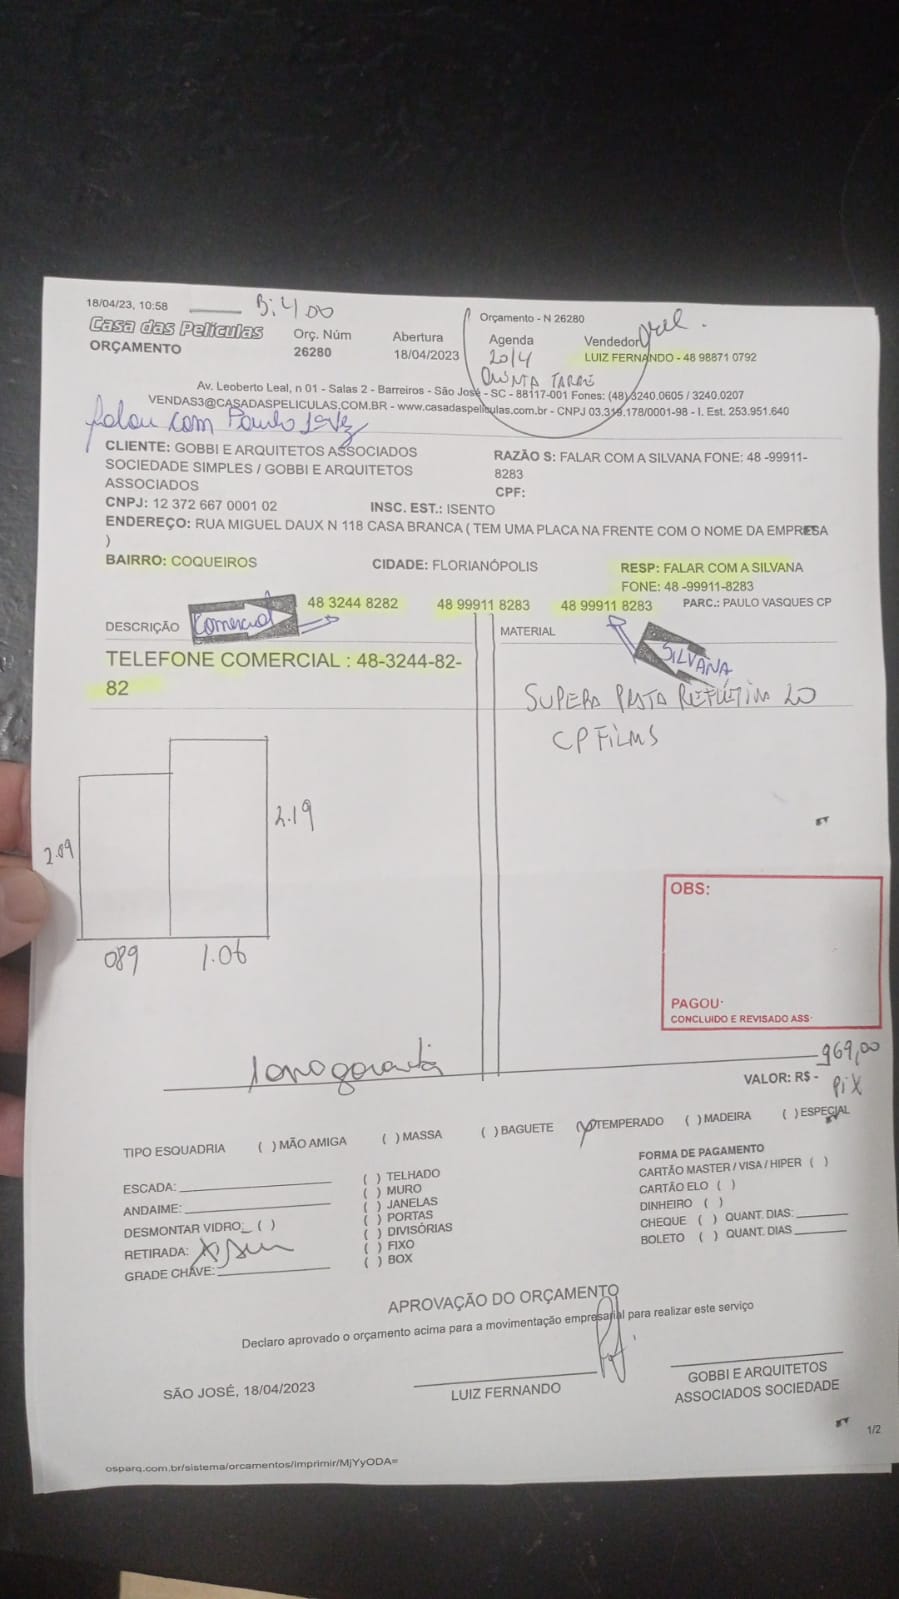 18/04/23, 10:58
Orçamento - N 26280
Casa das Películas
ORÇAMENTO
Orç. Núm
26280
Abertura
18/04/2023
Agenda
20/4
QUINTA TARDE
Vendedor
LUIZ FERNANDO - 48 98871 0792
Av. Leoberto Leal, n 01 - Salas 2 - Barreiros - São José - SC - 88117-001 Fones: (48) 3240.0605 / 3240.0207
VENDAS3@CASADASPELICULAS.COM.BR - www.casadaspeliculas.com.br - CNPJ 03.319.178/0001-98 - I. Est. 253.951.640
falou com Paulo
CLIENTE: GOBBI E ARQUITETOS ASSOCIADOS
SOCIEDADE SIMPLES / GOBBI E ARQUITETOS
ASSOCIADOS
RAZÃO S: FALAR COM A SILVANA FONE: 48 -99911-
8283
CPF:
CNPJ: 12 372 667 0001 02
INSC. EST.: ISENTO
ENDEREÇO: RUA MIGUEL DAUX N 118 CASA BRANCA ( TEM UMA PLACA NA FRENTE COM O NOME DA EMPRESA
)
BAIRRO: COQUEIROS
CIDADE: FLORIANÓPOLIS
RESP: FALAR COM A SILVANA
FONE: 48 -99911-8283
48 3244 8282
48 99911 8283
48 99911 8283
PARC.: PAULO VASQUES CP
DESCRIÇÃO
Comercial
MATERIAL
SILVANA
TELEFONE COMERCIAL : 48-3244-82-
82
SUPERA PRATA REFLETIVA 20
CP FILMS
2.09
2.19
089
1.06
OBS:
PAGOU:
CONCLUIDO E REVISADO ASS:
1 ano garantia
969,00
VALOR: R$ -
PIX
TIPO ESQUADRIA ( ) MÃO AMIGA ( ) MASSA ( ) BAGUETE ( ) TEMPERADO ( ) MADEIRA ( ) ESPECIAL
ESCADA:
ANDAIME:
DESMONTAR VIDRO: ( )
RETIRADA: X Sim
GRADE CHAVE:
( ) TELHADO
( ) MURO
( ) JANELAS
( ) PORTAS
( ) DIVISÓRIAS
( ) FIXO
( ) BOX
FORMA DE PAGAMENTO
CARTÃO MASTER / VISA / HIPER ( )
CARTÃO ELO ( )
DINHEIRO ( )
CHEQUE ( ) QUANT. DIAS:
BOLETO ( ) QUANT. DIAS
APROVAÇÃO DO ORÇAMENTO
Declaro aprovado o orçamento acima para a movimentação empresarial para realizar este serviço
SÃO JOSÉ, 18/04/2023
LUIZ FERNANDO
GOBBI E ARQUITETOS
ASSOCIADOS SOCIEDADE
1/2
osparq.com.br/sistema/orcamentos/imprimir/MjYyODA=